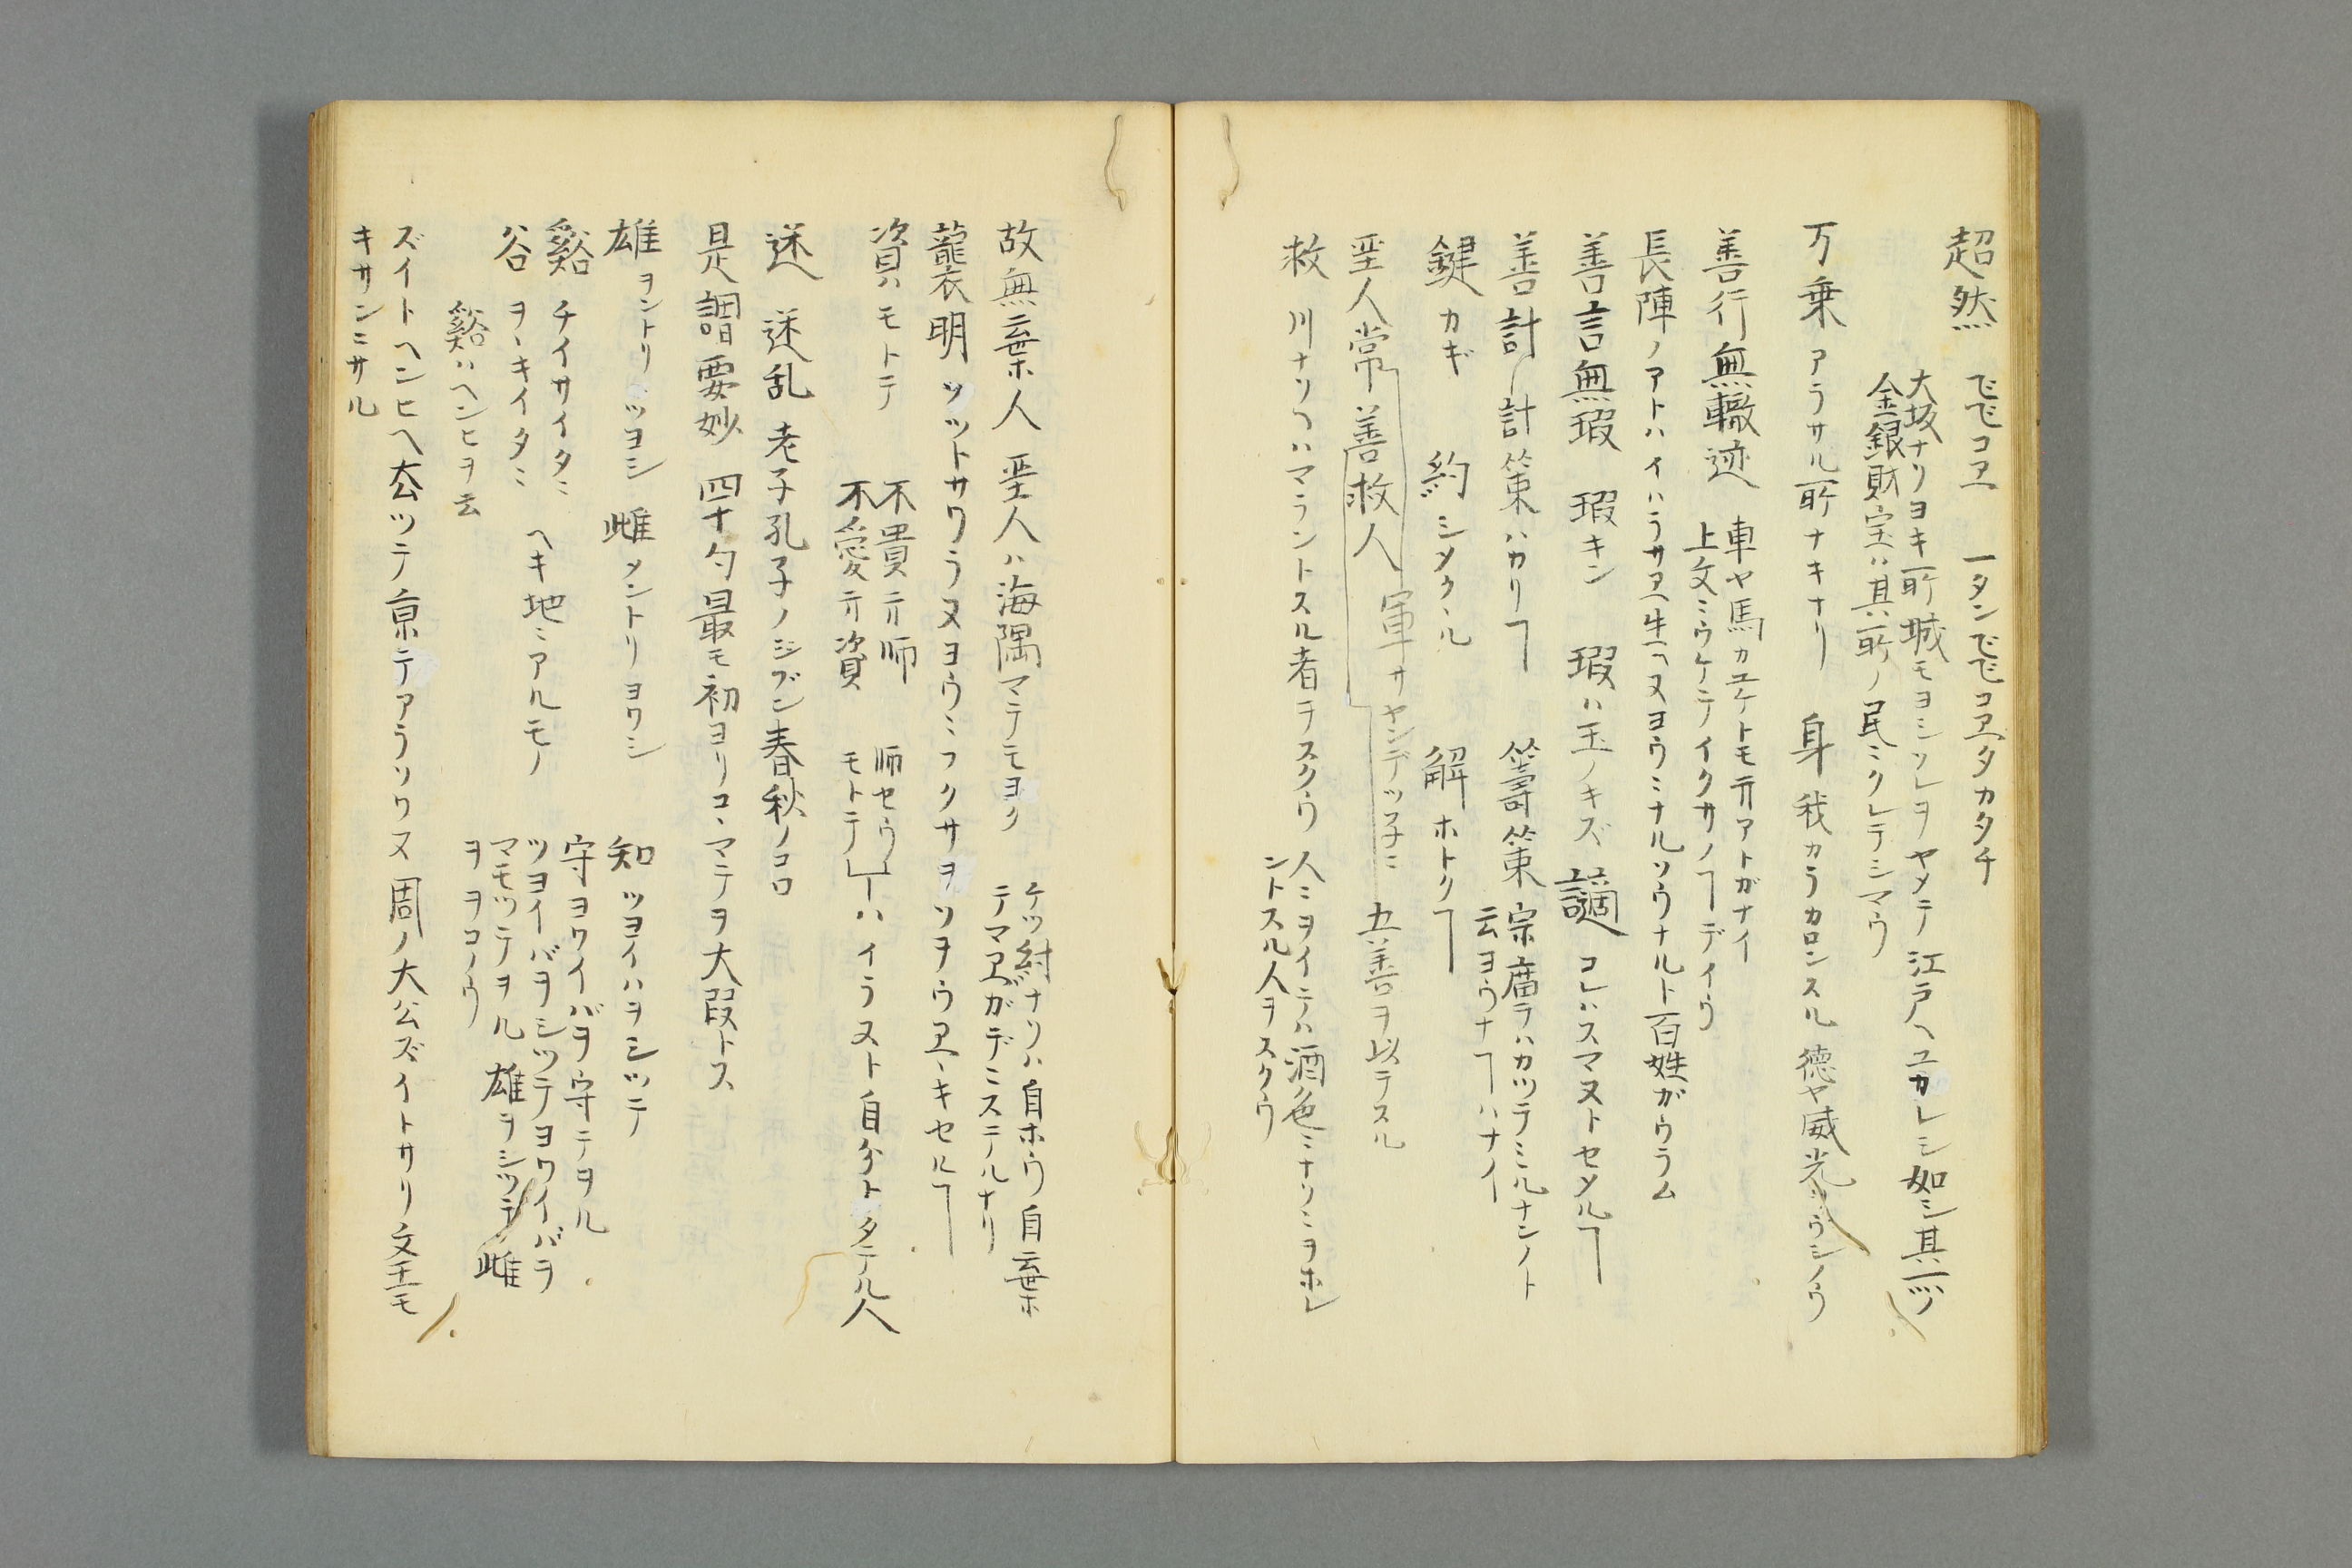 超然 コヱ 一タン コヱタカタチ
大坂ナリヨキ所城モヨシソレヲヤメテ江戸ヘユカレシ如シ其一ツ
金銀財宝ハ其所ノ民ニクレテシマウ
万乗 アラサル所ナキナリ 身 我カラカロンスル 徳ヤ威光
善行無轍迹 車ヤ馬カユケトモ アトガナイ
上文ニウケテイクサノヿデイウ
長陣ノアトハイハラサヱ生ヘヌヨウニナルソウナルト百姓ガウラム
善言無瑕 瑕キン 瑕ハ玉ノキズ 謫 コレハスマヌトセメルヿ
善計 計策ハカリヿ 籌策 宗廟ラハカツテミルナンノト
云ヨウナヿハナイ
鍵カギ 約シメクヽル 解ホトクヿ
聖人常善救人 軍サヤンデツ子ニ 五善ヲ以テスル
救 川ナリヘハマラントスル者ヲスクウ 人ニヲイテハ酒色ニナリニヲホレ
ントスル人ヲスクウ
故無棄人 聖人ハ海隅マテモヨク ケツ紂ナリハ自ホウ自棄
テマヱガデニステルナリ
襲明 ツツトサワラヌヨウニフクサヲソヲウヱヽキセルヿ
資ハモトテ 不貴 師 師セウ
不愛 資 モトテ ハイラヌト自分トタテル人
迷 迷乱 老子孔子ノジブン春秋ノコロ
是謂要妙 四十勺最モ初ヨリコヽマテヲ大段トス
雄ヲントリ ツヨシ 雌メントリヨワシ 知ツヨイハヲシツテ
谿 チイサイタニ 守ヨワイバヲ守テヲル
谷 ヲヽキイタニ ヘキ地ニアルモノ ツヨイバヲシツテヨワイバヲ
マモツテヲル 雄ヲシツテ 雌
谿ハヘンヒヲ云 ヲヲコノウ
ズイトヘンヒヘ 公ツテ テアラソワヌ 周ノ大公ズイトサリ文王モ
キサンニサル